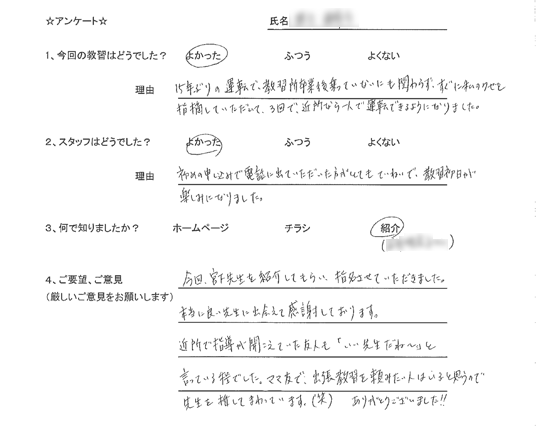 ☆アンケート☆ 氏名
1、今回の教習はどうでした？ よかった ふつう よくない
理由 15年ぶりの運転で、教習所卒業後乗っていないにも関わらず、すぐに私のクセを
指摘していただいて、3回で、近所なら一人で運転できるようになりました。
2、スタッフはどうでした？ よかった ふつう よくない
理由 初めの申し込みで電話に出ていただいた方がとてもていねいで、教習即日が
楽しみになりました。
3、何で知りましたか？ ホームページ チラシ 紹介
4、ご要望、ご意見 今回、宮下先生を紹介してもらい、指名させていただきました。
(厳しいご意見をお願いします) 本当に良い先生に出会えて感謝しております。
近所で指導が聞こえていた友人も「いい先生だね〜」と
言っている程でした。ママ友で、出張教習を頼みたい人はいると思うので
先生を推してまわっています。(笑) ありがとうございました!!